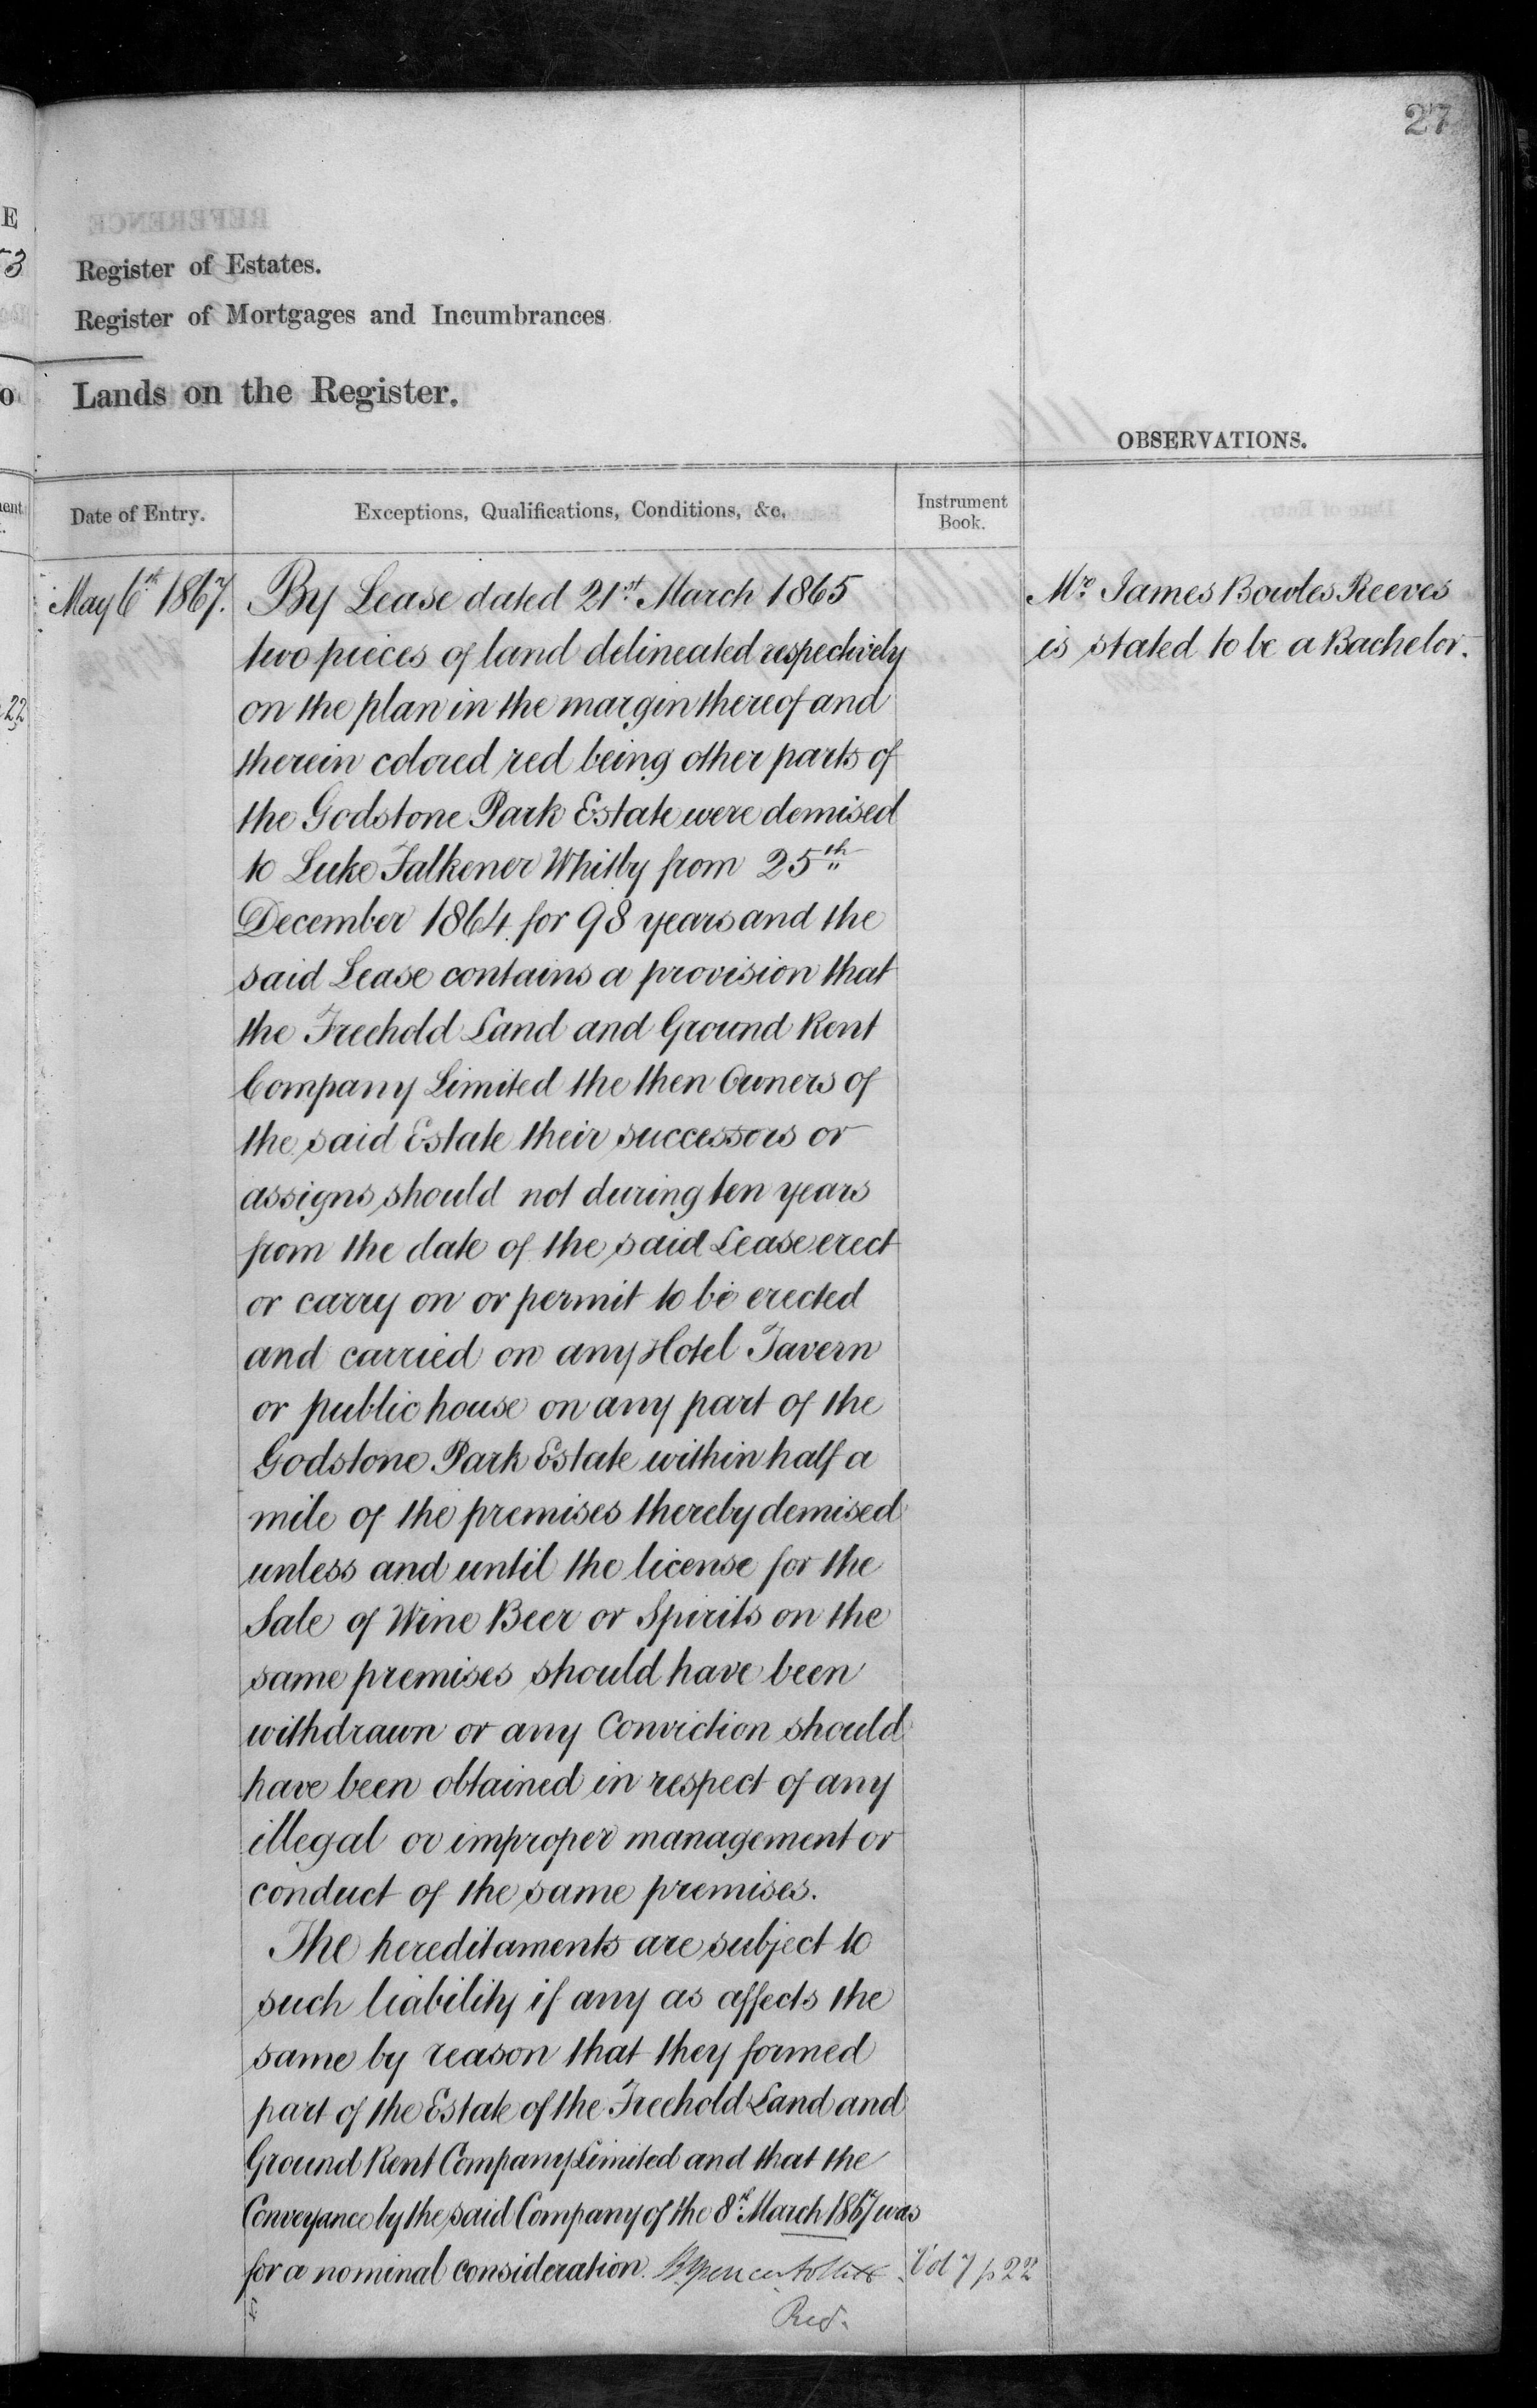 27
Register of Estates.
Register of Mortgages and Incumbrances.
Lands on the Register.
OBSERVATIONS.
Date of Entry.
Exceptions, Qualifications, Conditions, &c.
Instrument
Book.
May 6th 1867.
By Lease dated 21st March 1865
two pieces of land delineated respectively
on the plan in the margin thereof and
therein colored red being other parts of
the Godstone Park Estate were demised
to Luke Falkener Whitby from 25th
December 1864 for 98 years and the
said Lease contains a provision that
the Freehold Land and Ground Rent
Company Limited the then Owners of
the said Estate their successors or
assigns should not during ten years
from the date of the said Lease erect
or carry on or permit to be erected
and carried on any Hotel Tavern
or public house on any part of the
Godstone Park Estate within half a
mile of the premises thereby demised
unless and until the license for the
Sale of Wine Beer or Spirits on the
same premises should have been
withdrawn or any Conviction should
have been obtained in respect of any
illegal or improper management or
conduct of the same premises.
The hereditaments are subject to
such liability if any as affects the
same by reason that they formed
part of the Estate of the Freehold Land and
Ground Rent Company Limited and that the
Conveyance by the said Company of the 8th March 1867 was
for a nominal consideration.
Vol 7 p 22
Reg.
Mr. James Bowles Reeves
is stated to be a Bachelor.